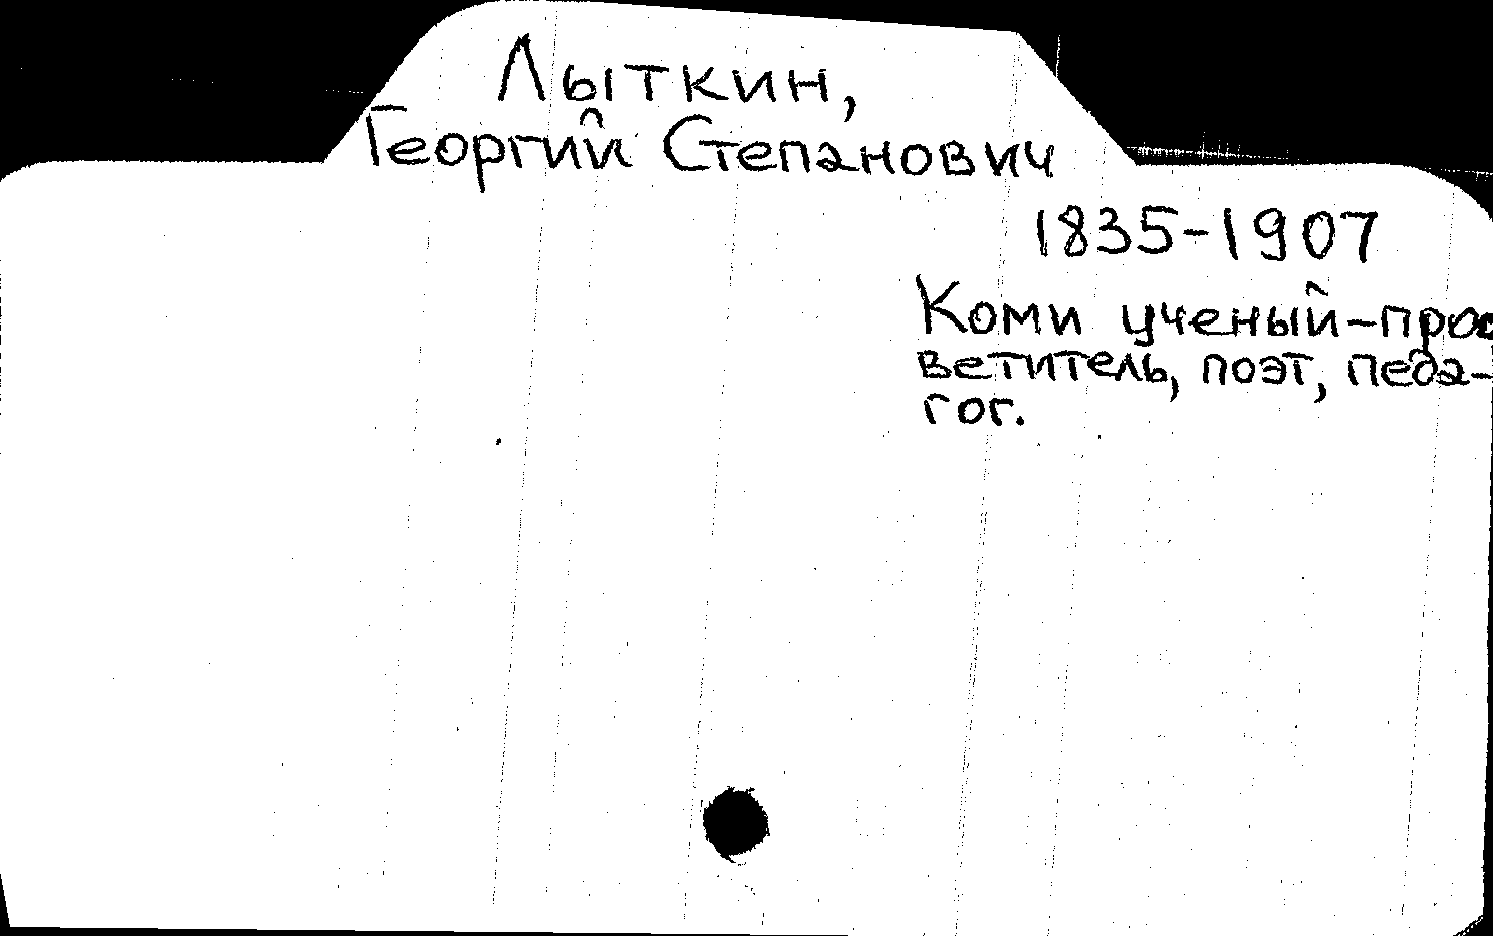 Лыткин,
Георгий Степанович
1835-1907
Коми ученый-прос
ветитель, поэт, педа-
гог.